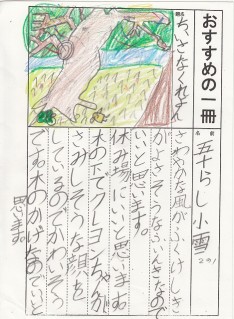 おすすめの一冊
題名
ちいさなくれよん
名前
五十らし小雪
2の1
さわやかな風がふくけしき
がよさそうなふんいきなので
いいと思います。
休み場にいいと思います。
木の下でクレヨンちゃんが
さみしそうな顔を
しているのがかわいそう
です。木のかげなのでいいと
思います。